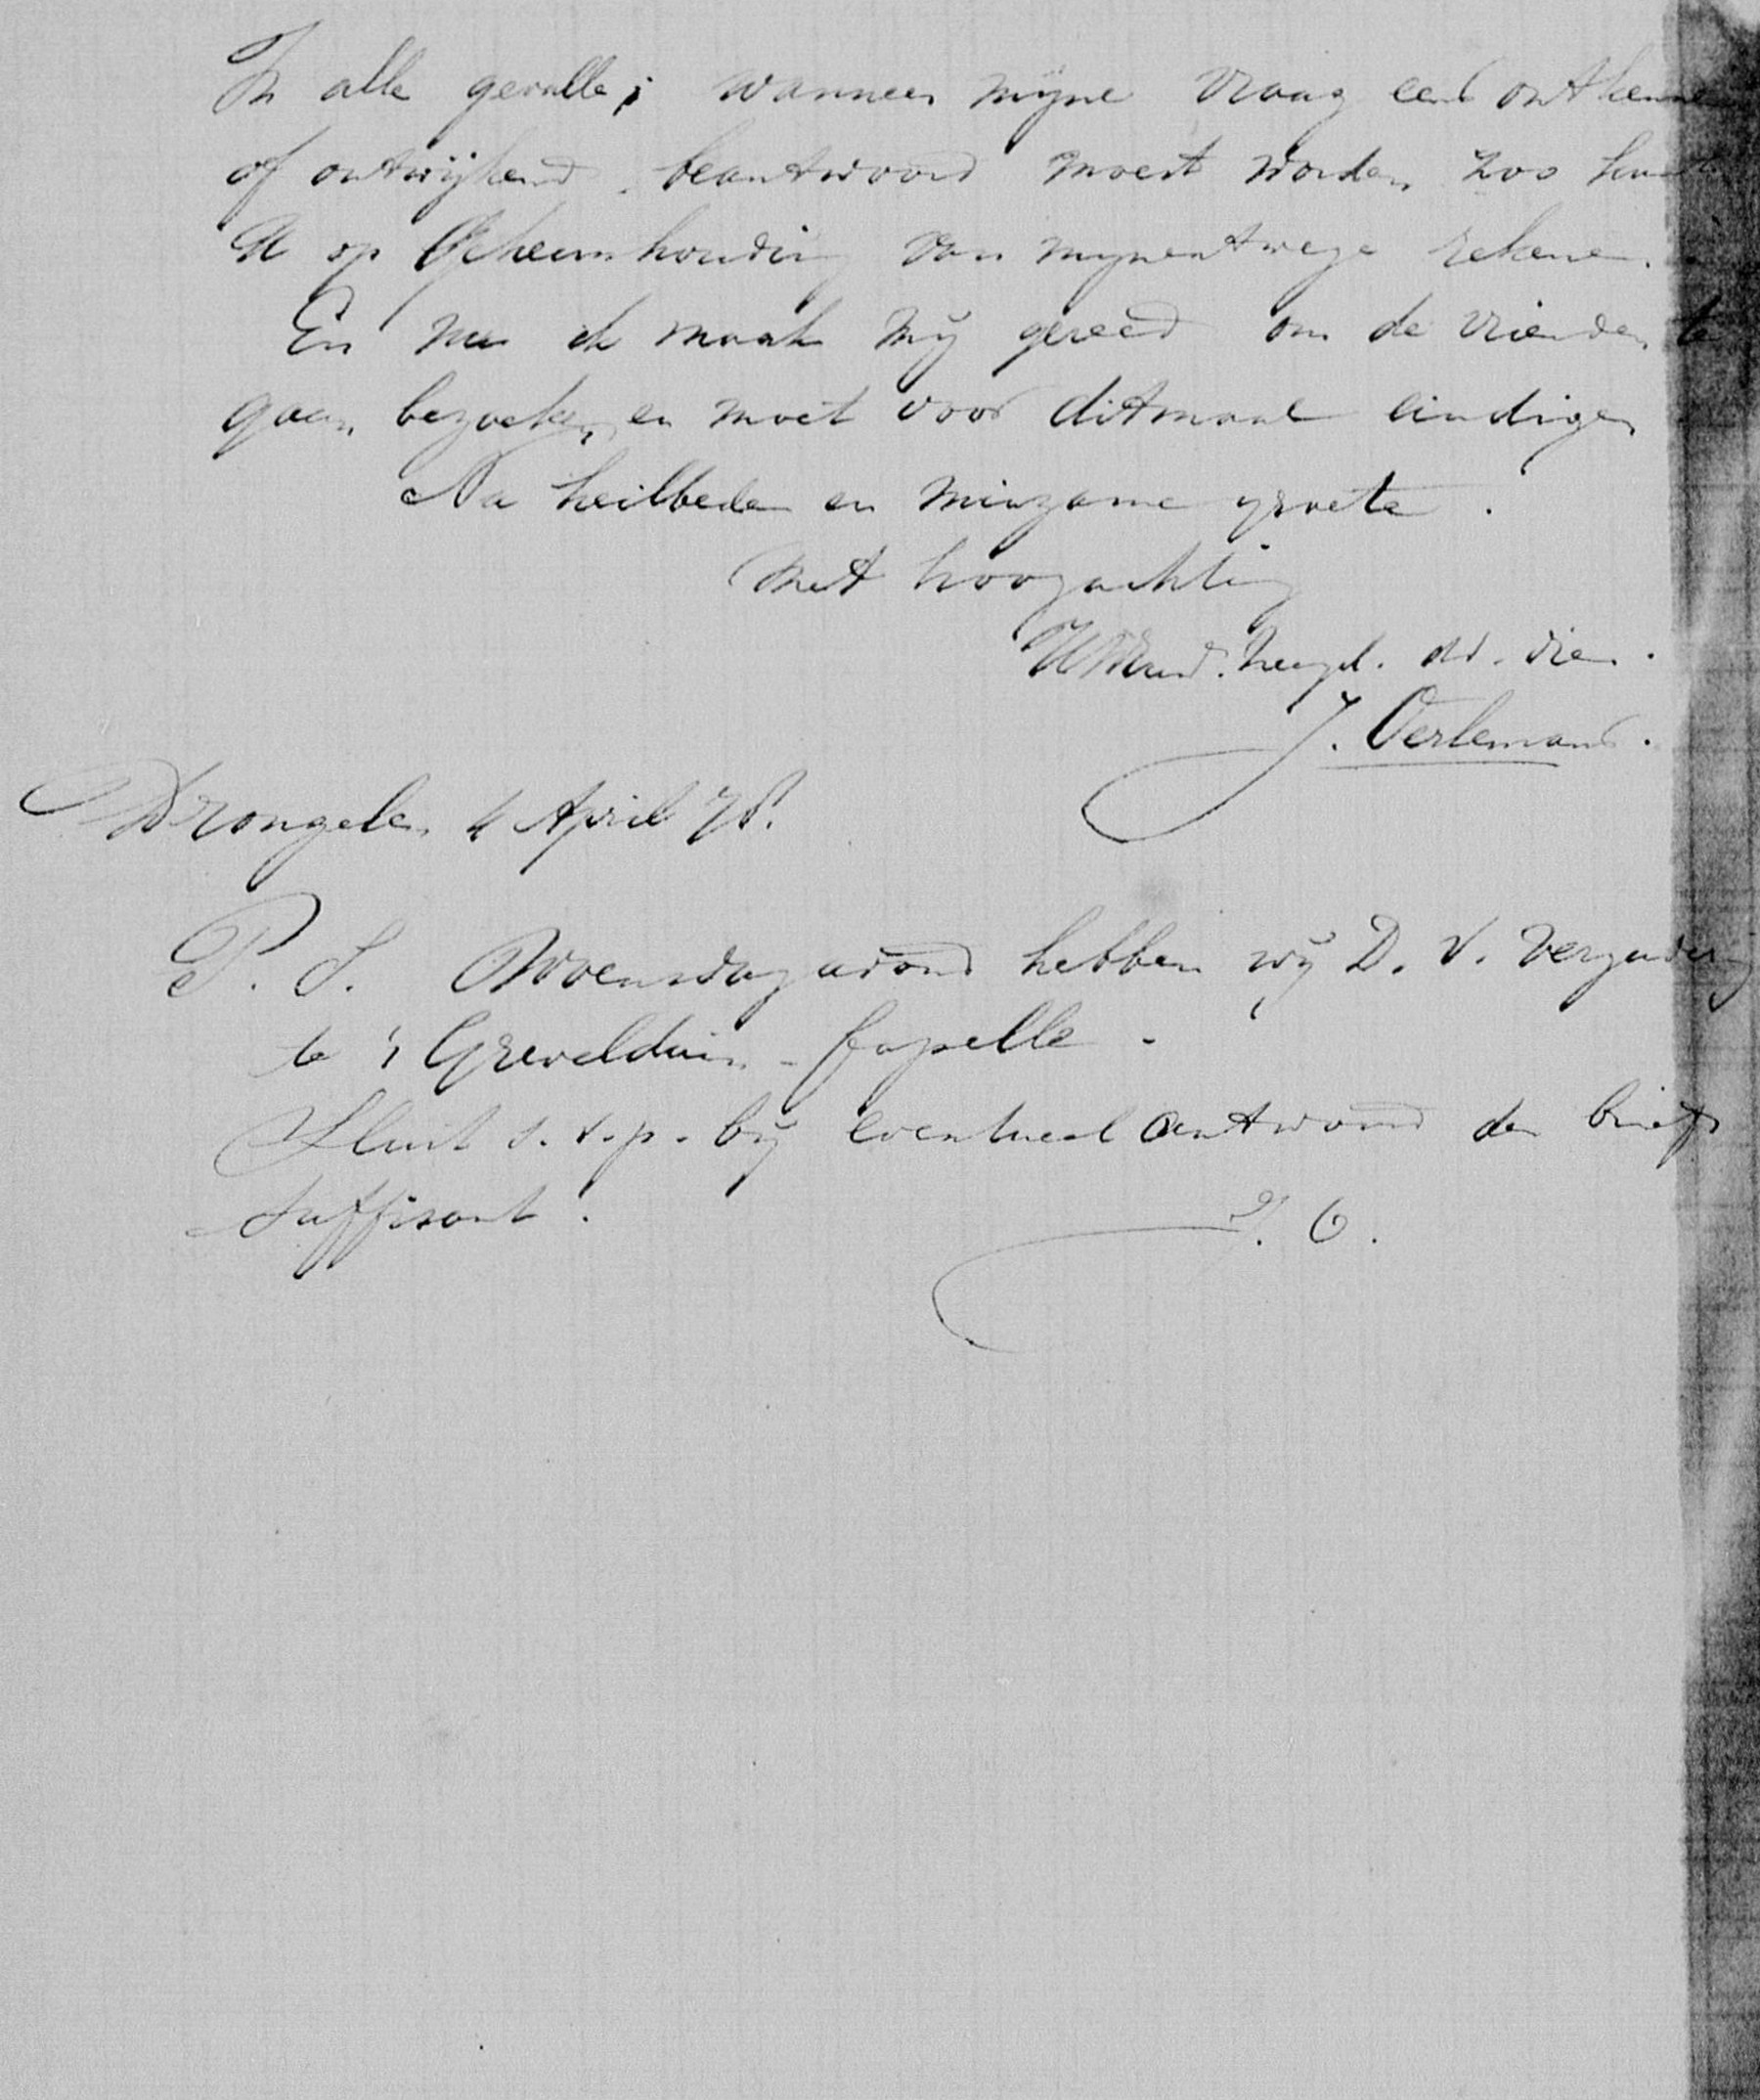 In alle gevalle, wanneer mijne vraag eens ontkenne
of ontwijkend beantwoord moest worden zoo kunt
U op Geheimhouding van mijnentwege rekenen.
En nu ik maak mij gereed om de vrienden te
gaan bezoeken, en moet voor ditmaal eindigen
Na heilbede en minzame groete.
Met hoogachting
UWEerw. heilgd. dw. dien.
J. Oerlemans.
Drongelen 4 April 78.
P. S. Woensdag avond hebben wij D. V. Vergadering
te 's Grevelduin-Capelle.
Sluit s.v.p. bij eventueel antwoord den brief
suffisant.
J. O.